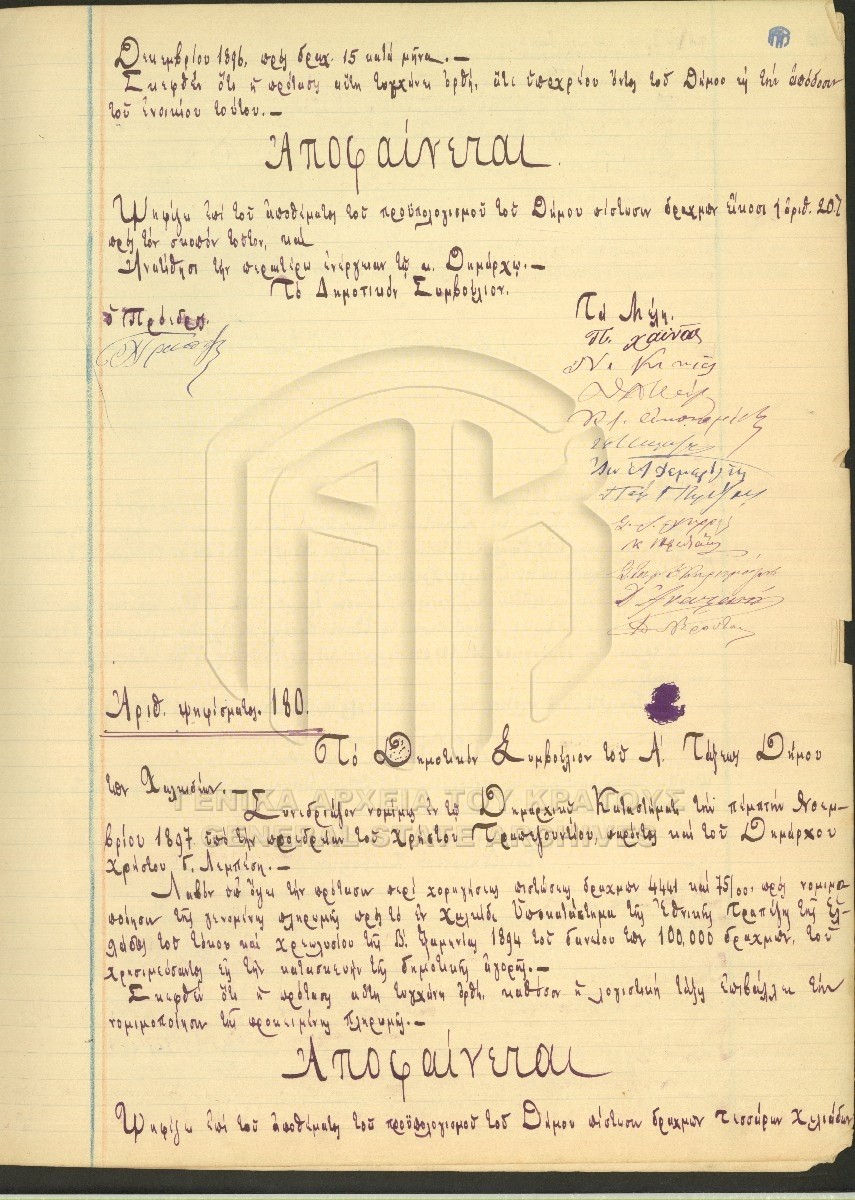 Δεκεμβρίου 1896, πρός δραχ. 15 κατά μῆνα. —
Σκεφθέν ὅτι ἡ πρότασις αὕτη τυγχάνει ὀρθή, ἅτε ὑποχρέου ὄντος τοῦ Δήμου εἰς τήν ἀπόδοσιν
τοῦ ἐνοικίου τούτου. —
Ἀποφαίνεται
Ψηφίζει ἐπί τοῦ ἀποθέματος τοῦ προϋπολογισμοῦ τοῦ Δήμου πίστωσιν δραχμῶν εἴκοσι (ἀριθ. 20)
πρός τόν σκοπόν τοῦτον, καί
Ἀνατίθησι τήν περαιτέρω ἐνέργειαν τῷ κ. Δημάρχῳ. —
Τό Δημοτικόν Συμβούλιον.
ὁ Πρόεδρος
Τά Μέλη.
Π. χαϊνᾶς
Ἀριθ. ψηφίσματος. 180.
Τό Δημοτικόν Συμβούλιον τοῦ Α΄. Τάξεως Δήμου
τῶν Χαλκιδέων. —
ΓΕΝΙΚΑ ΑΡΧΕΙΑ ΤΟΥ ΚΡΑΤΟΥΣ
GENERAL STATE ARCHIVES
Συνεδριάζον νομίμως ἐν τῷ Δημαρχικῷ Καταστήματι τήν πέμπτην Νοεμ-
βρίου 1897 ὑπό τήν προεδρείαν τοῦ Χρήστου Τραπεζουντίου, παρόντος καί τοῦ Δημάρχου
Χρήστου Γ. Λεμπέση. —
Λαβόν ὑπ' ὄψει τήν πρότασιν περί χορηγήσεως πιστώσεως δραχμῶν 4441 καί 75/00, πρός νομιμο
ποίησιν τῆς γενομένης πληρωμῆς πρός τό ἐν Χαλκίδι Ὑποκατάστημα τῆς Ἐθνικῆς Τραπέζης τῆς Ἑλ-
λάδος τοῦ τόκου καί χρεωλυσίου τῆς Β΄. ἑξαμηνίας 1894 τοῦ δανείου τῶν 100,000 δραχμῶν, τοῦ
χρησιμεύσαντος εἰς τήν κατασκευήν τῆς δημοτικῆς ἀγορᾶς. —
Σκεφθέν ὅτι ἡ πρότασις αὕτη τυγχάνη ὀρθή, καθόσον ἡ λογιστική τάξις ἐπιβάλλει τήν
νομιμοποίησιν τῆς προκειμένης πληρωμῆς. —
Ἀποφαίνεται
Ψηφίζει ἐπί τοῦ ἀποθέματος τοῦ προϋπολογισμοῦ τοῦ Δήμου πίστωσιν δραχμῶν τεσσάρων χιλιάδων